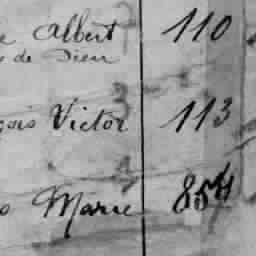 e Albert 110
s de Dieu
çois Victor 113
o Marie 854